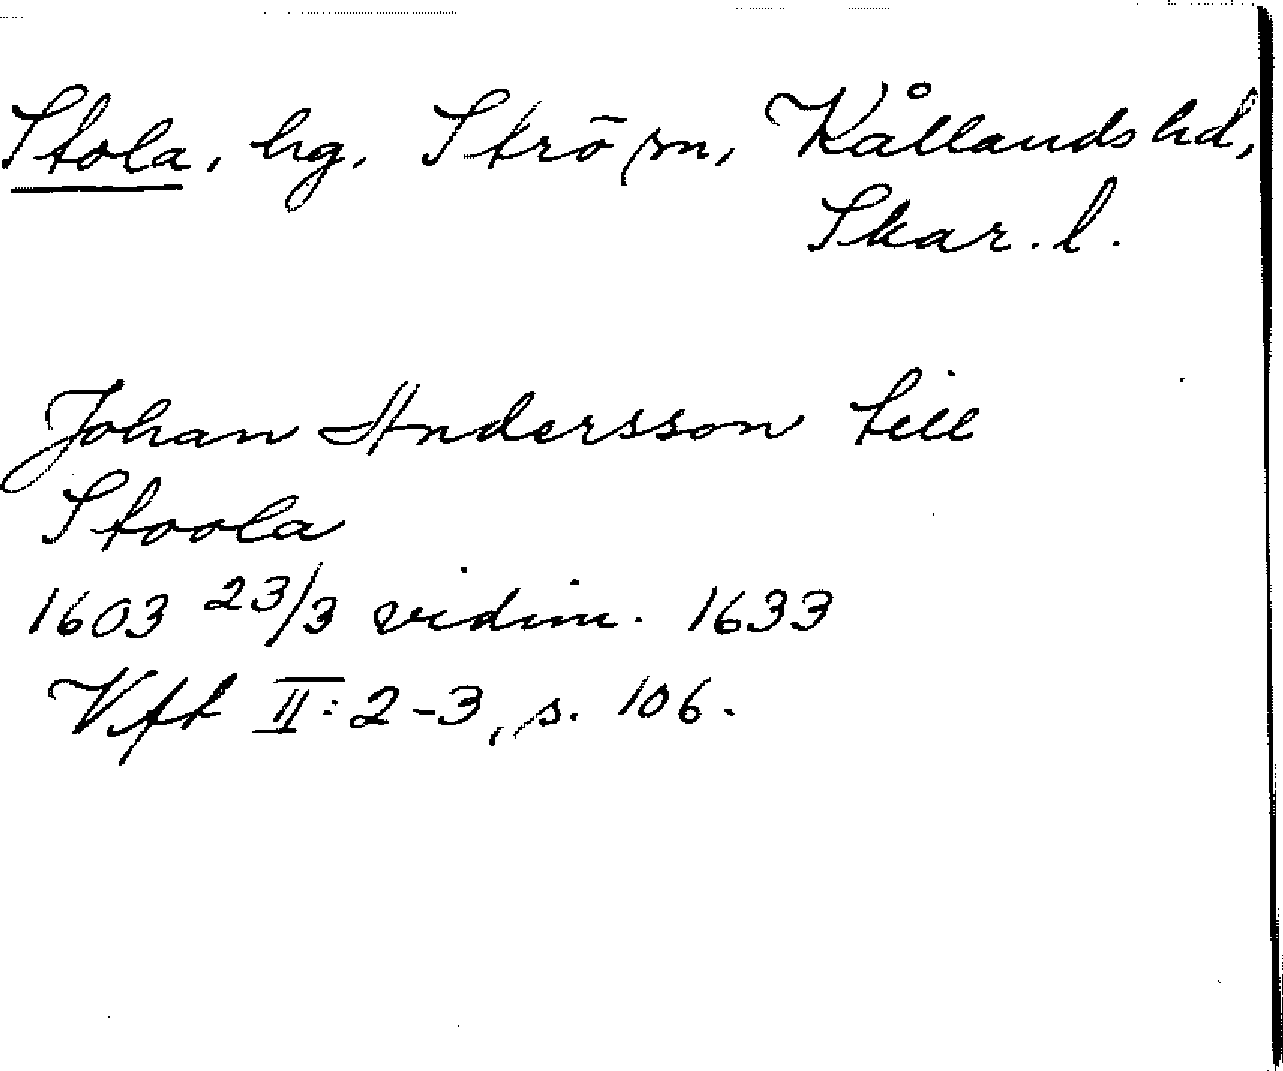 Stola, hg. Strö sn, Kållands hd,
Skar. l.
Johan Andersson till
Stoola
1603 23/3 vidim. 1633
Vft II:2-3, s. 106.